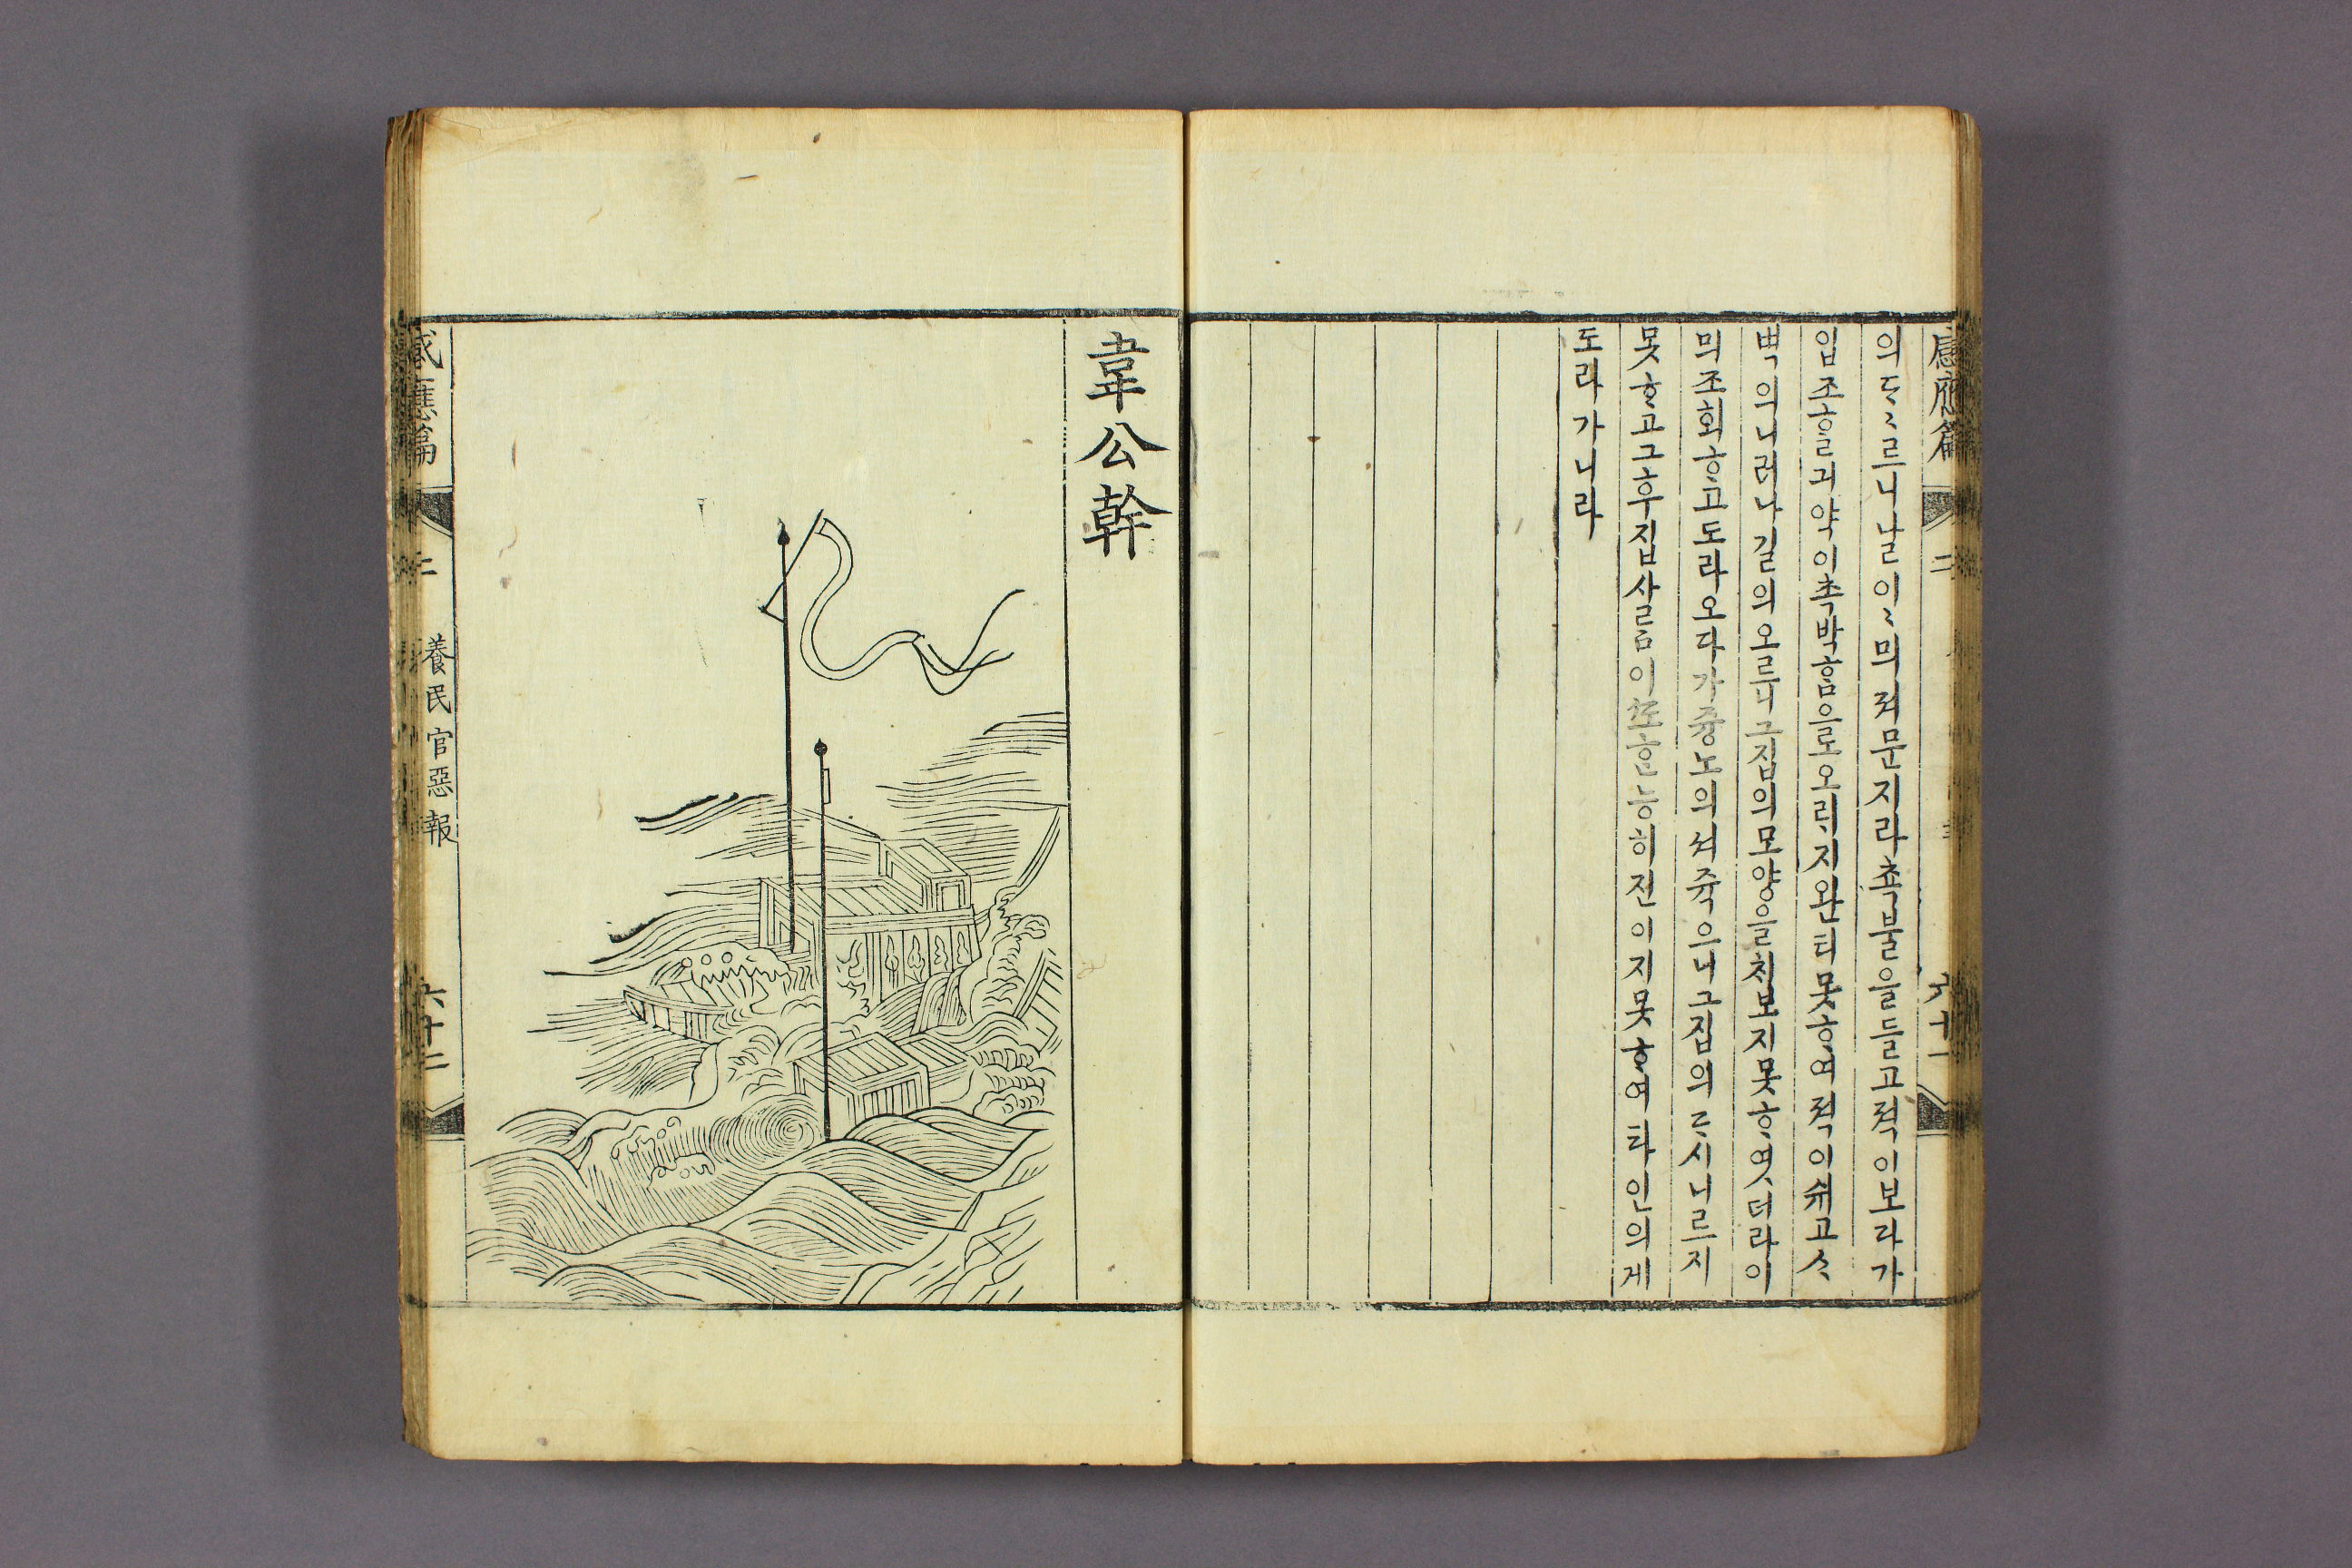 感應篇 二 六十一
의ᄃᆞ〻르니날이〻믜져문지라쵹불을들고젹이보라가
입조ᄒᆞᆯ긔약이촉박ᄒᆞᆷ으로오ᄅᆡ지완티못ᄒᆞ여젹이쉬고ᄉᆡ
벽의니러나길의오르니그집의모양을친보지못ᄒᆞ엿더라이
믜조회ᄒᆞ고도라오다가즁노의셔쥭으니그집의ᄃᆞ시니르지
못ᄒᆞ고그후집사ᄅᆞᆷ이ᄯᅩᄒᆞᆫ능히젼이지못ᄒᆞ여타인의게
도라가니라
韋公幹
感應篇 二 養民官惡報 六十二